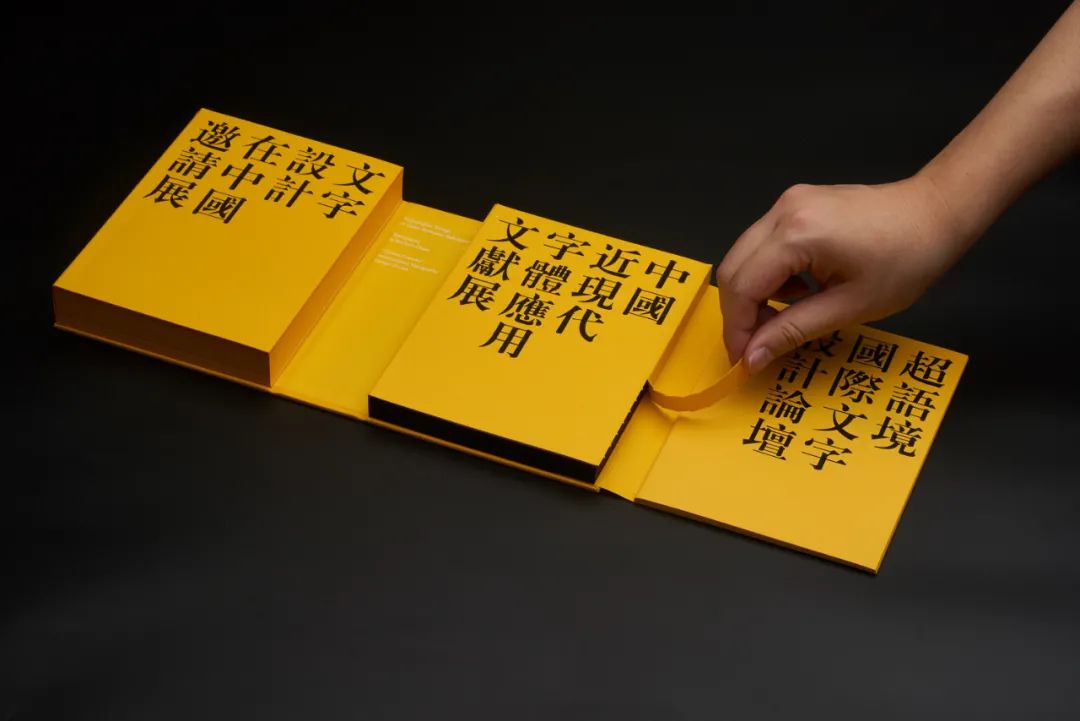 文字
設計
在中國
邀請展
中國
近現代
字體應用
文獻展
超語境
國際文字
設計論壇